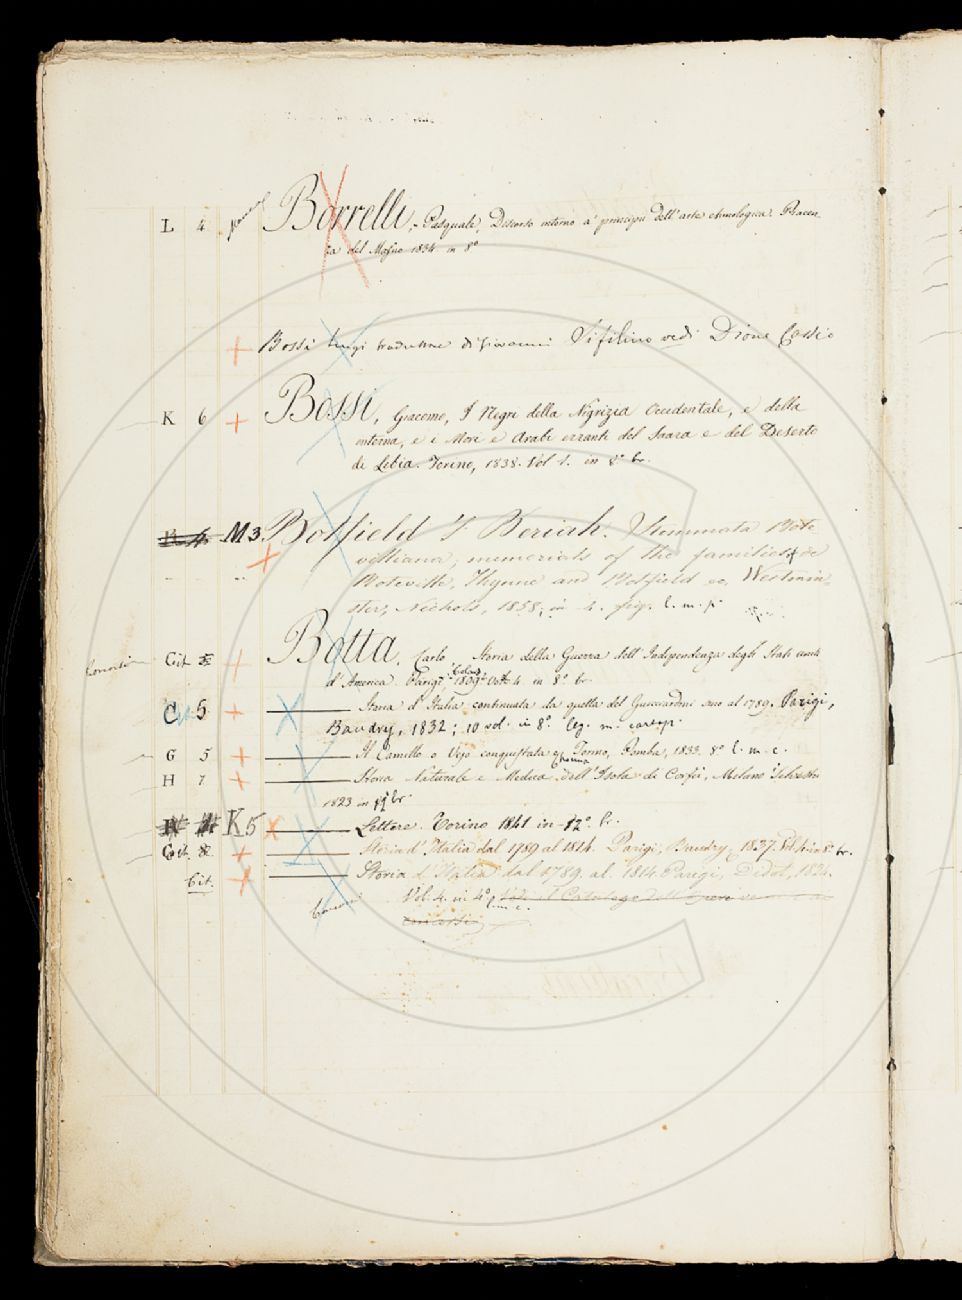 L 4 Borrelli, Pasquale, Discorso intorno a' principii dell'arte etimologica. Piacen
za del Majno 1834 in 8º
Bossi Luigi traduttore di Giovanni Sifilino vedi Dione Cassio
K 6 Bossi, Giacomo, I Negri della Nigrizia Occidentale, e della
interna, e i Mori e Arabi erranti del Saara e del Deserto
di Libia. Torino, 1838. Vol 1. in 8º br.
M 3. Botfield T. Beriah. Stemmata Bote
villiana; memorials of the families of de
Boteville, Thynne and Botfield ec, Westmin
ster, Nichols, 1858; in 4. fig. l. m. p.
Cit. Botta, Carlo, Storia della Guerra dell'Independenza degli Stati uniti
d'America. Parigi, Colas 1809. Vol. 4 in 8º br.
C 5 Storia d'Italia continuata da quella del Guicciardini sino al 1789. Parigi,
Baudry, 1832; 10 vol. in 8º leg. m.
G 5 Il Camillo o Vejo conquistata Torino, Pomba, 1833. 8º l. m. c.
H 7 Storia Naturale e Medica dell'Isola di Corfù, Milano Silvestri
1823 in br.
K 5 Lettere. Torino 1841 in-12º. br.
Cit. Storia d'Italia dal 1789 al 1814. Parigi, Baudry, 1837. Vol. in 8º br.
Cit. Storia d'Italia dal 1789. al. 1814. Parigi, Didot, 1824.
Vol. 4. in 4º l. m. c. Vedi il Catalogo dell'